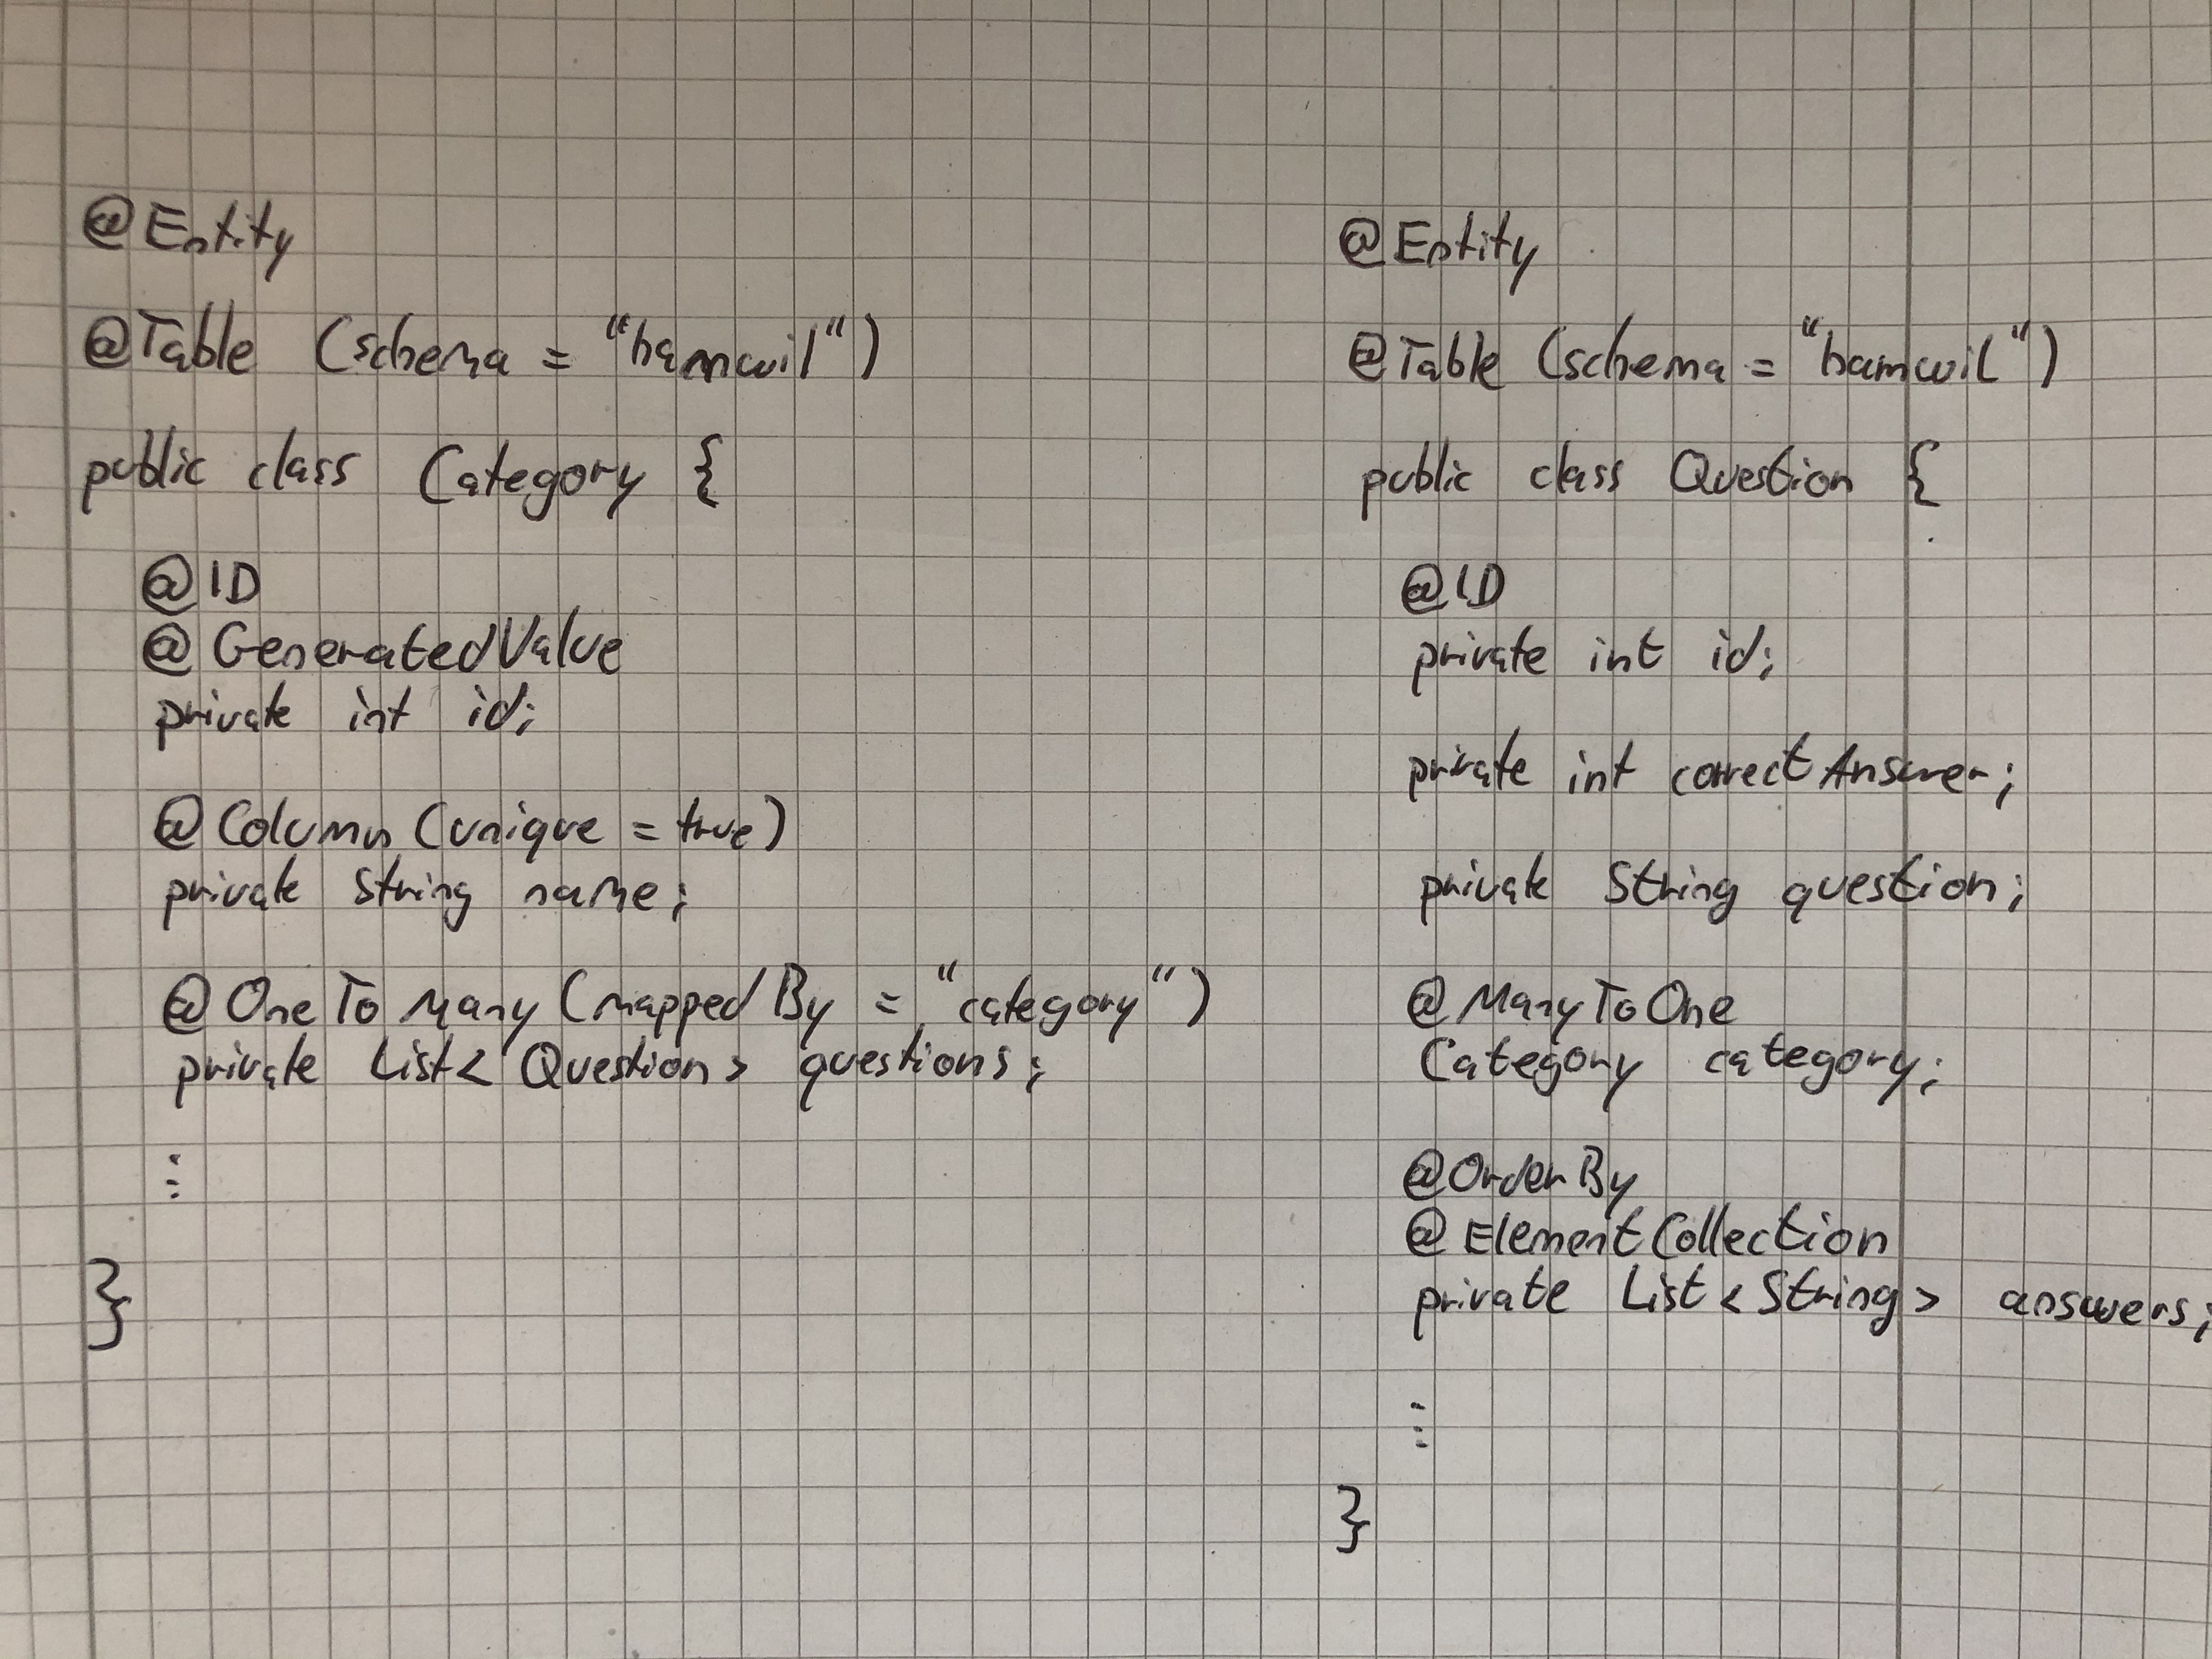 @Entity
@Table (schema = "hamwil")
public class Category {
@ID
@GeneratedValue
private int id;
@Column (unique = true)
private String name;
@OneToMany (mappedBy = "category")
private List<Question> questions;
⋮
}
@Entity
@Table (schema = "hamwil")
public class Question {
@ID
private int id;
private int correctAnswer;
private String question;
@ManyToOne
Category category;
@OrderBy
@ElementCollection
private List<String> answers;
⋮
}